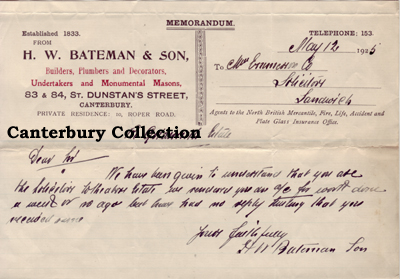 MEMORANDUM.
Established 1833.
TELEPHONE: 153.
FROM
H. W. BATEMAN & SON,
Builders, Plumbers and Decorators,
Undertakers and Monumental Masons,
83 & 84, ST. DUNSTAN'S STREET,
CANTERBURY.
PRIVATE RESIDENCE: 10, ROPER ROAD.
May 12 1925
To Messrs Emmerson & Co
Solicitors
Sandwich
Agents to the North British Mercantile, Fire, Life, Accident and
Plate Glass Insurance Office.
Canterbury Collection
Estate
Dear Sir
We have been given to understand that you are
the Solicitor to the above Estate we you an a/c for work done
a week or so ago but have had no reply that you
received same
Yours faithfully
H W Bateman Son